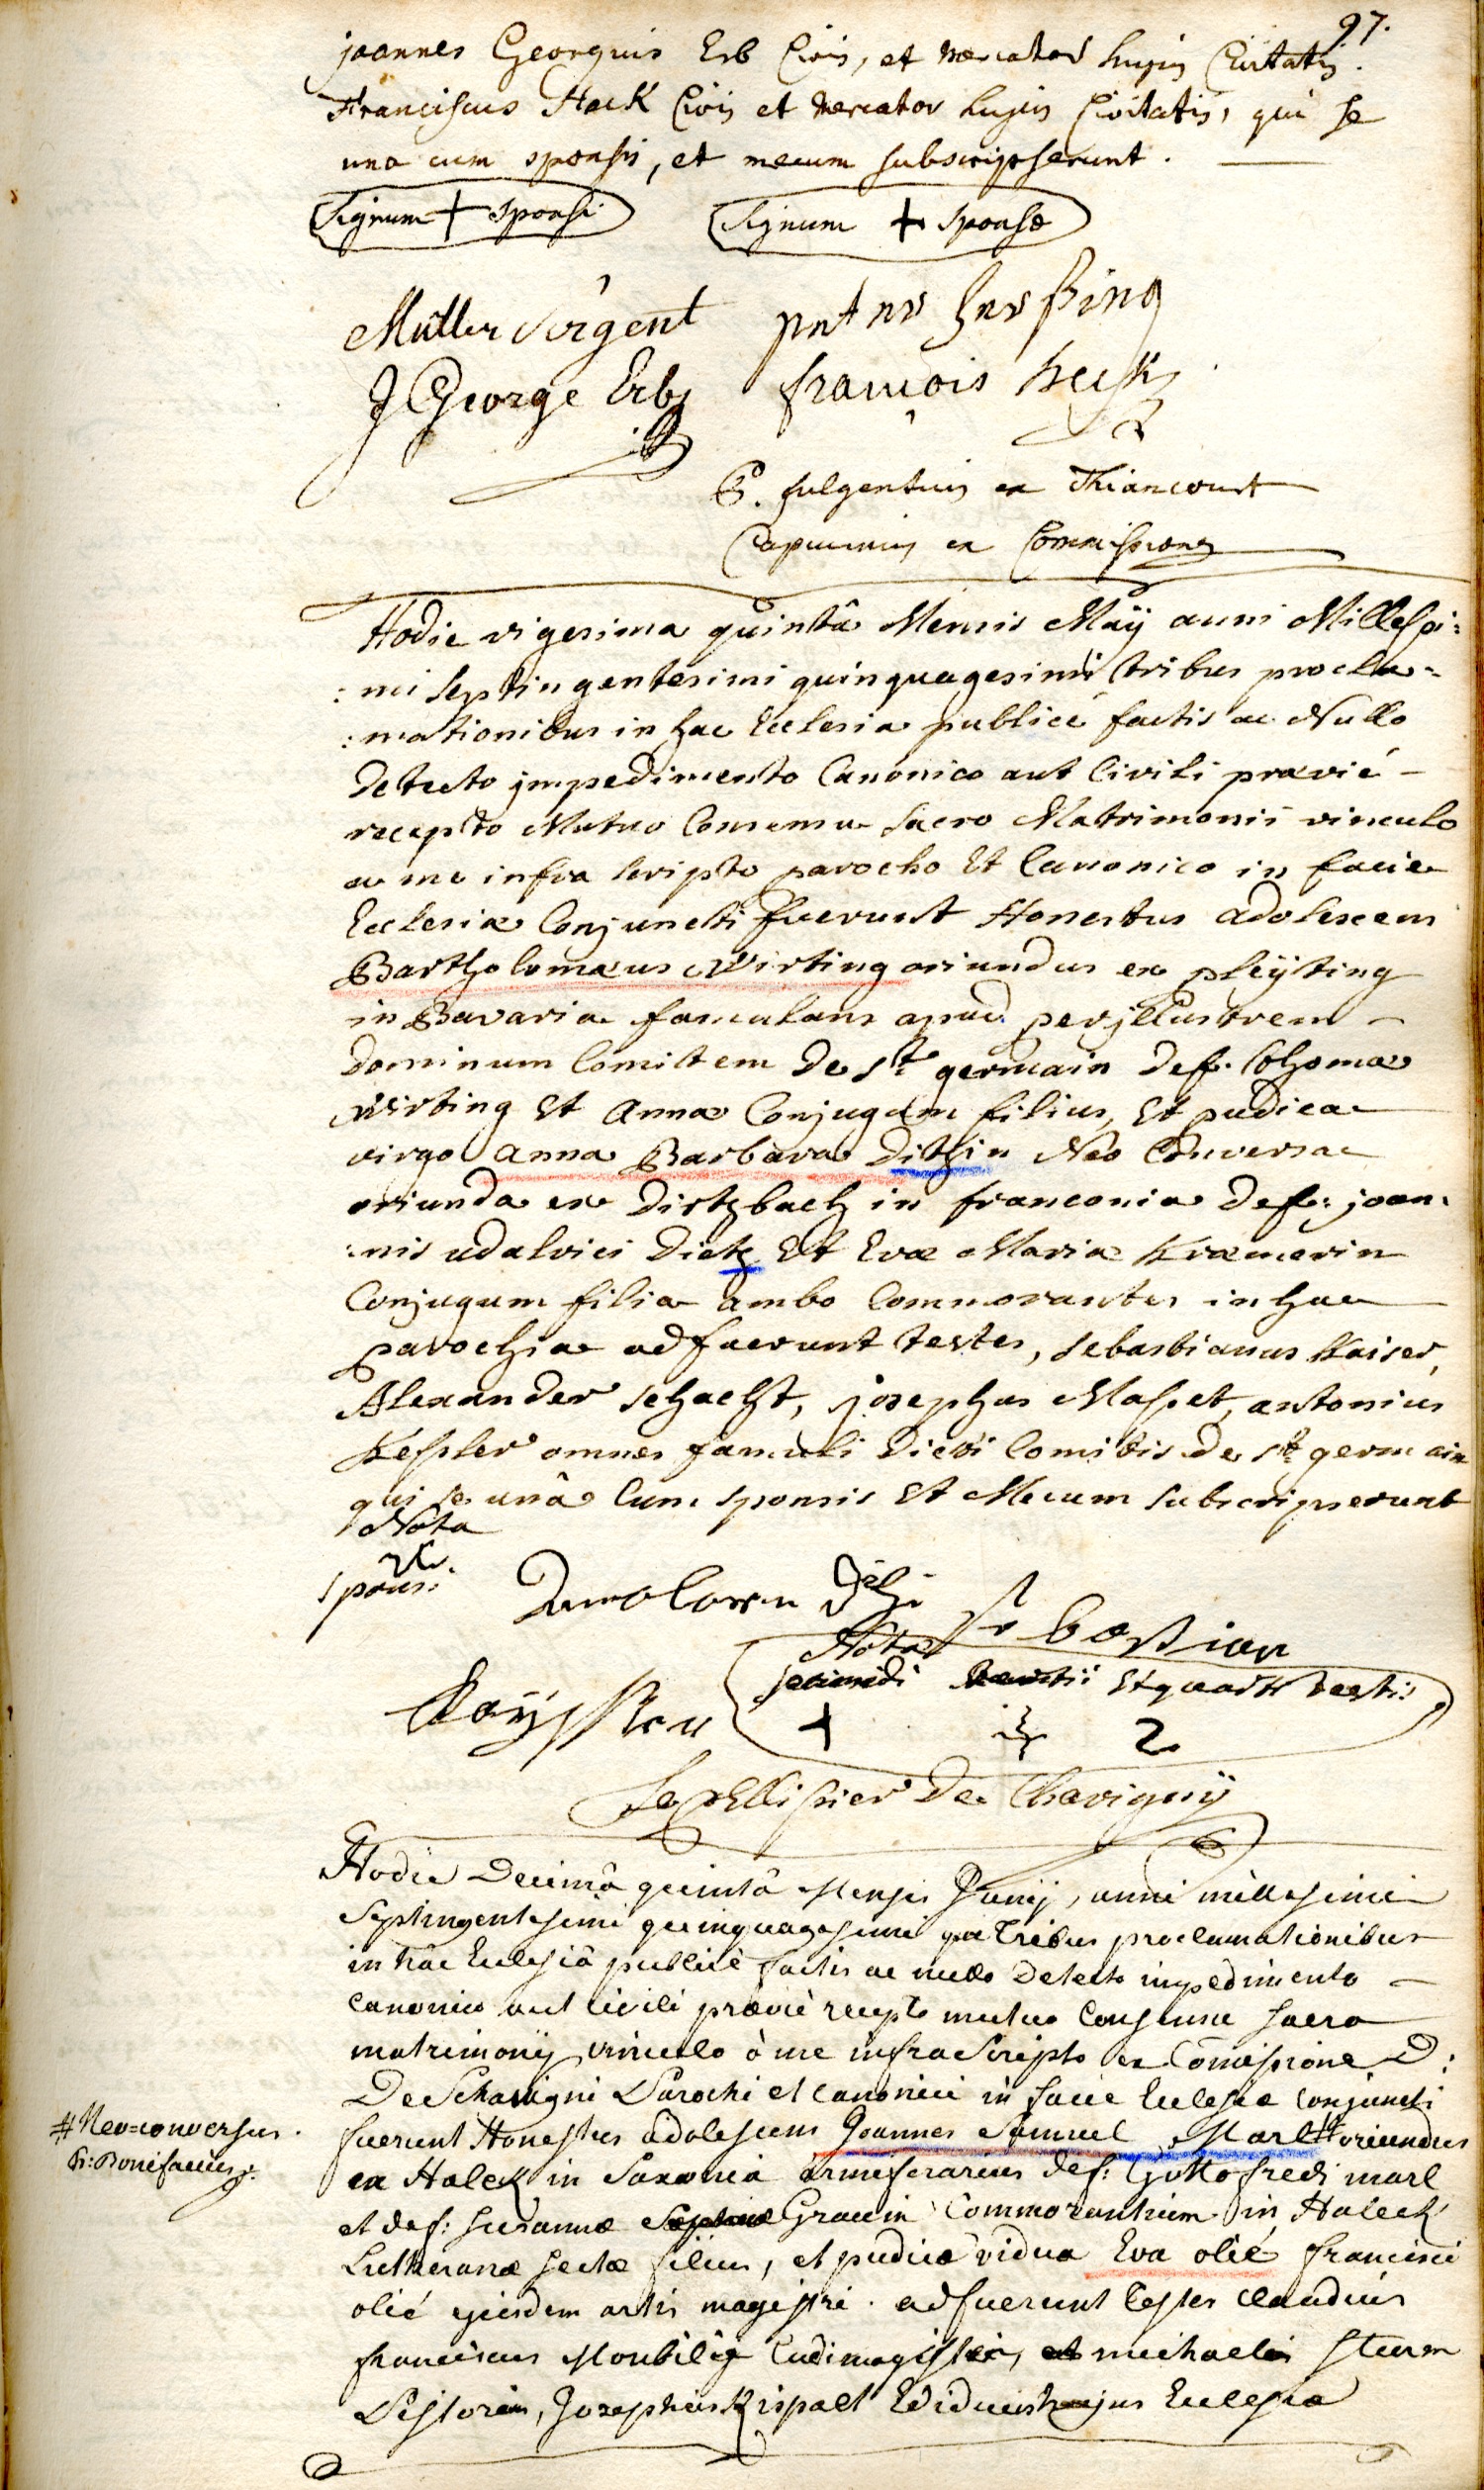 97.
joannes Georgius Erb Civis, et mercator hujus Civitatis.
Franciscus Hack Civis et mercator hujus Civitatis, qui se
una cum sponsis, et mecum subscripserunt.
Signum + sponsi Signum + sponsæ
Müller Sergent peter
J George Erb françois heck
P. fulgentius ex Thiancourt
Capucinus ex Commissione
Hodie vigesima quintâ Mensis Maÿ anni Millesi=
:mi septingentesimi quinquagesimi tribus procla=
:mationibus in hac Ecclesia publicé factis ac Nullo
Detecto jmpedimento Canonico aut Civili prævié
recepto Mutuo Consensu sacro Matrimonii vinculo
a me infra scripto parocho Et Canonico in facie
Ecclesiæ Conjuncti fuerunt Honestus adolescens
Bartholomæus Wirting oriundus ex pleÿting
in Bavaria famulans apud perjllustrem
Dominum Comitem De st germain Def. thomæ
Wirting Et Annæ Conjugum filius, Et pudica
virgo Anna Barbara Ditzin Neo Conversa
oriunda ex Dirtzbach in franconia Def: joan:
:nis udalrici Dietz Et Evæ Mariæ Kræmerin
Conjugum filia ambo Commorantes in hac
parochia adfuerunt testes, sebastianus Kaiser,
Alexander schacht, josephus Maspet, antonius
Kessler omnes famuli Dicti Comitis De st germain
qui se unâ Cum sponsis Et Mecum subscripserunt
Nota
sponsi
sebastian
Nota
secundi tertii Et quarti testis
+ 2
Le pellissier De Chavignÿ
Hodie Decimâ quintâ Mensis Junij, anni millesimi
Septingentesimi quinquagesimi Tribus proclamationibus
in hâc Ecclesiâ publicè factis ac nullo Detecto impedimento
Canonico aut Civili præviè recepto mutuo Consensu sacro
matrimonij vinculo à me infra Scripto ex Comissione D:
De Schavigni Parochi et Canonici in facie Ecclesiæ Conjuncti
fuerunt Honestus adolescens Joannes Samuel Marl # oriundus
# Neo=conversus.
fr: Bonifacius
ex Haleck in Saxonia armiferarius def: Gottofredi marl
et def: susannæ Grauin Commorantium in Haleck
Lutheranæ sectæ filius, et pudica vidua Eva olié francisci
olié ejusdem artis magistri. adfuerunt testes Claudius
franciscus Monbilig Ludimagister, michaelis sturm
Pistoris, Josephus Rispalt Ædituus hujus Ecclesiæ